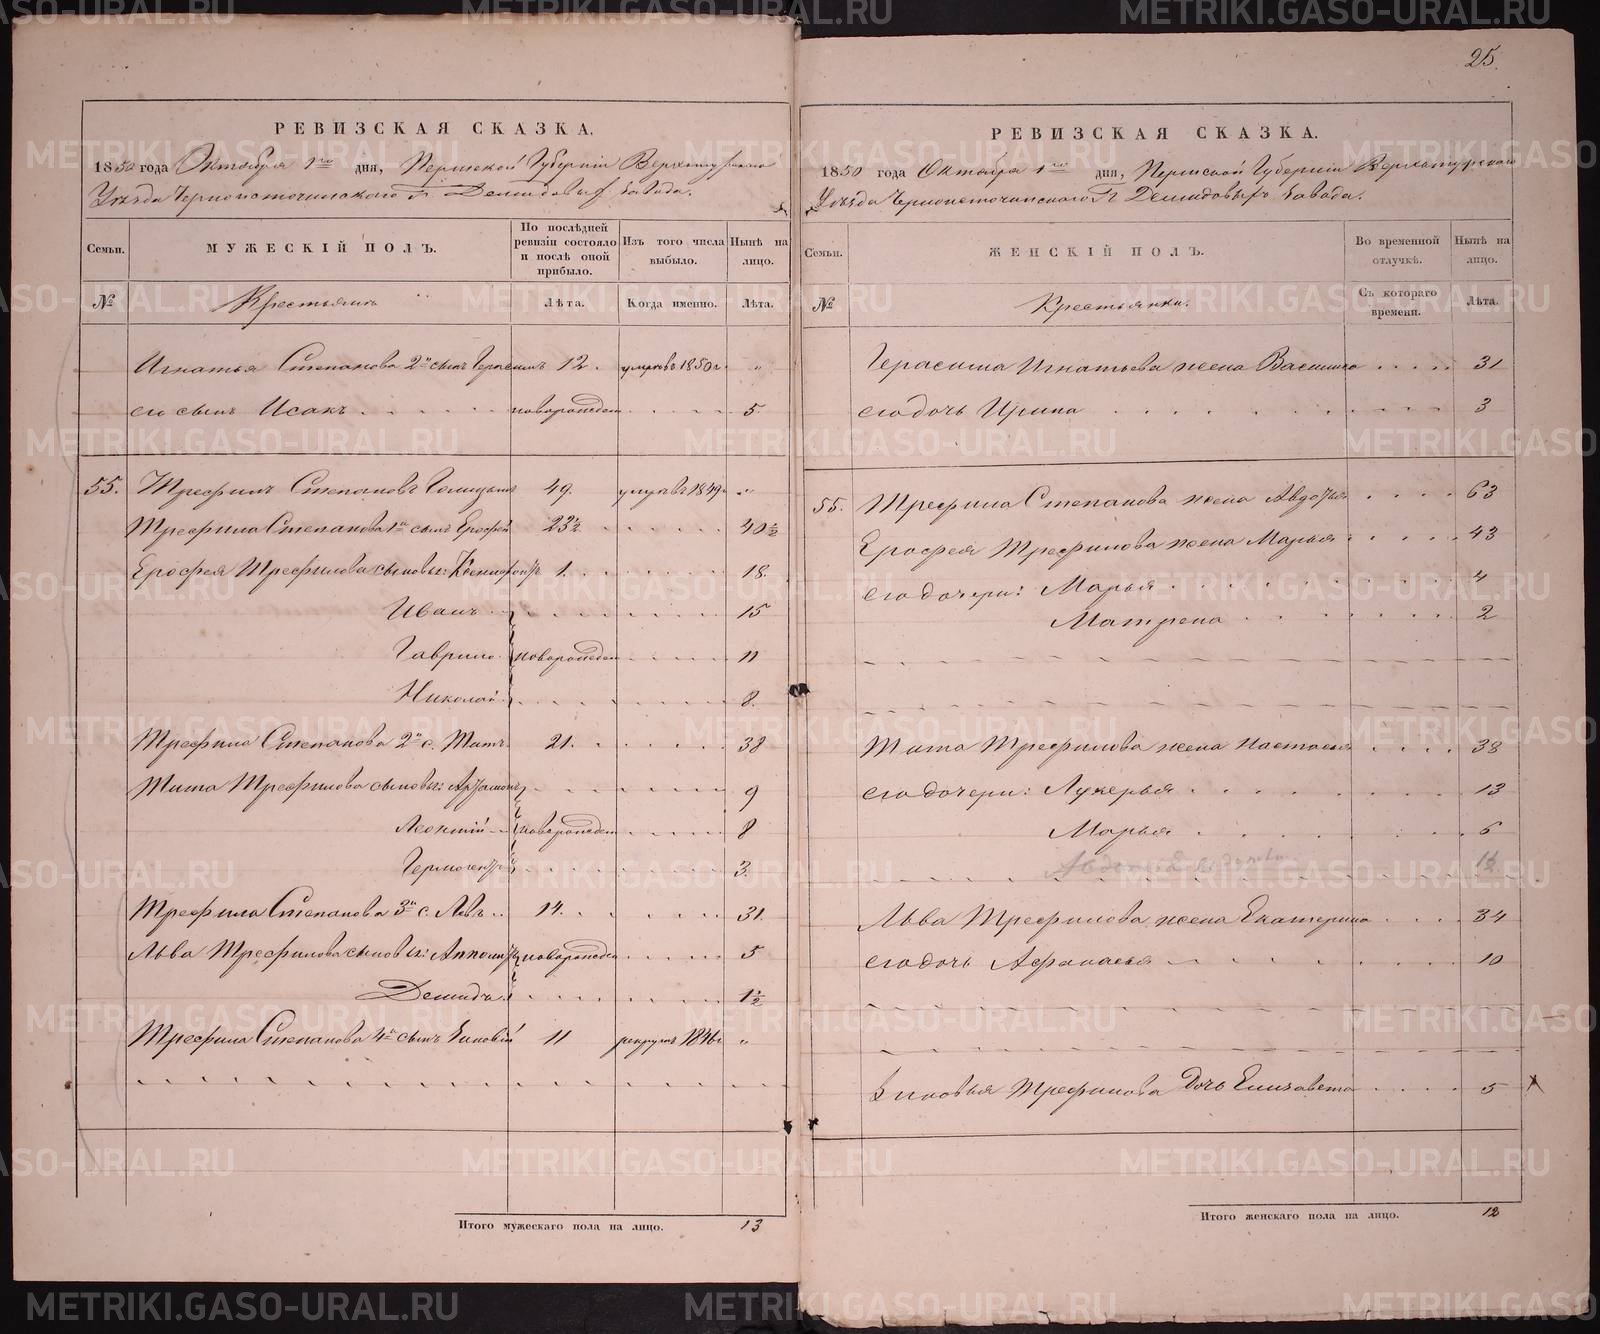 25.
РЕВИЗСКАЯ СКАЗКА.
1850 года Октября 1го дня, Пермской Губерніи Верхотурскаго
Уѣзда Черноисточинскаго Гг. Демидовыхъ завода.
Семьи.
МУЖЕСКІЙ ПОЛЪ.
По послѣдней ревизіи состояло и послѣ оной прибыло.
Изъ того числа выбыло.
Нынѣ на лицо.
№
Крестьянъ
Лѣта.
Когда именно.
Лѣта.
Игнатья Степанова 2й сынъ Герасимъ 12. умеръ въ 1850 г. "
его сынъ Исакъ новорожден 5.
55. Трефилъ Степановъ 49. умеръ въ 1849 г "
Трефила Степанова 1й сынъ Ерофей 23½ 40½
Ерофея Трефилова сыновья: Ксенофонтъ 1. 18.
Иванъ 15
Гаврило новорожден 11
Николай 8.
Трефила Степанова 2й с. Титъ 21. 38
Тита Трефилова сыновья: Артамонъ 9
Леонтій новорожден 8
3.
Трефила Степанова 3й с. Левъ 14. 31.
Льва Трефилова сыновья: новорожден 5
Демидъ 1½
Трефила Степанова 4й сынъ Зиновій 11 рекрутъ 1846 г "
Итого мужескаго пола на лицо. 13
РЕВИЗСКАЯ СКАЗКА.
1850 года Октября 1го дня, Пермской Губерніи Верхотурскаго
Уѣзда Черноисточинскаго Гг Демидовыхъ завода.
Семьи.
ЖЕНСКІЙ ПОЛЪ.
Во временной отлучкѣ.
Нынѣ на лицо.
№
Крестьянки.
Съ котораго времени.
Лѣта.
Герасима Игнатьева жена Василиса 31
его дочь Ирина 3
55. Трефила Степанова жена Авдотья 63
Ерофея Трефилова жена Марья 43
его дочери: Марья 4
Матрена 2
Тита Трефилова жена Настасья 38
его дочери: Лукерья 13
Марья 6
Льва Трефилова жена Екатерина 34
его дочь Афанасья 10
Зиновья Трефилова дочь Елизавета 5
Итого женскаго пола на лицо. 12
METRIKI.GASO-URAL.RU